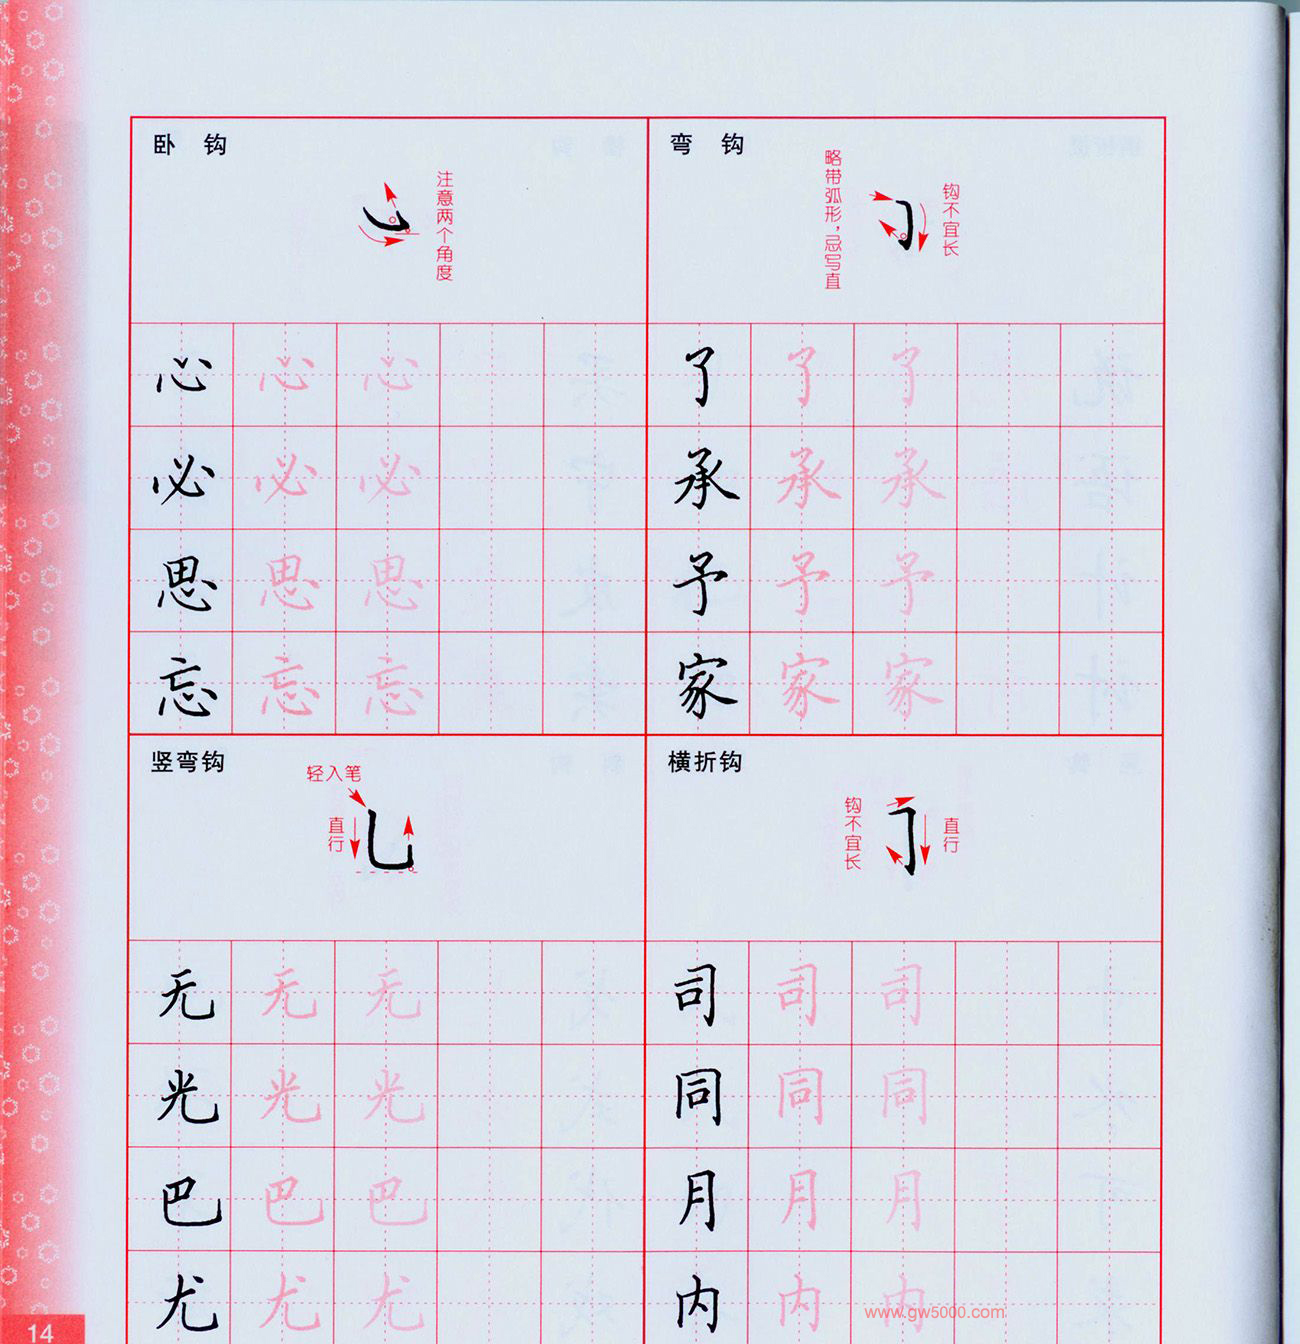 卧 钩
注意两个角度
心 心 心
必 必 必
思 思 思
忘 忘 忘
弯 钩
略带弧形，忌写直
钩不宜长
了 了 了
承 承 承
予 予 予
家 家 家
竖弯钩
轻入笔
直行
无 无 无
光 光 光
巴 巴 巴
尤 尤 尤
横折钩
钩不宜长
直行
司 司 司
同 同 同
月 月 月
内 内 内
www.gw5000.com
14